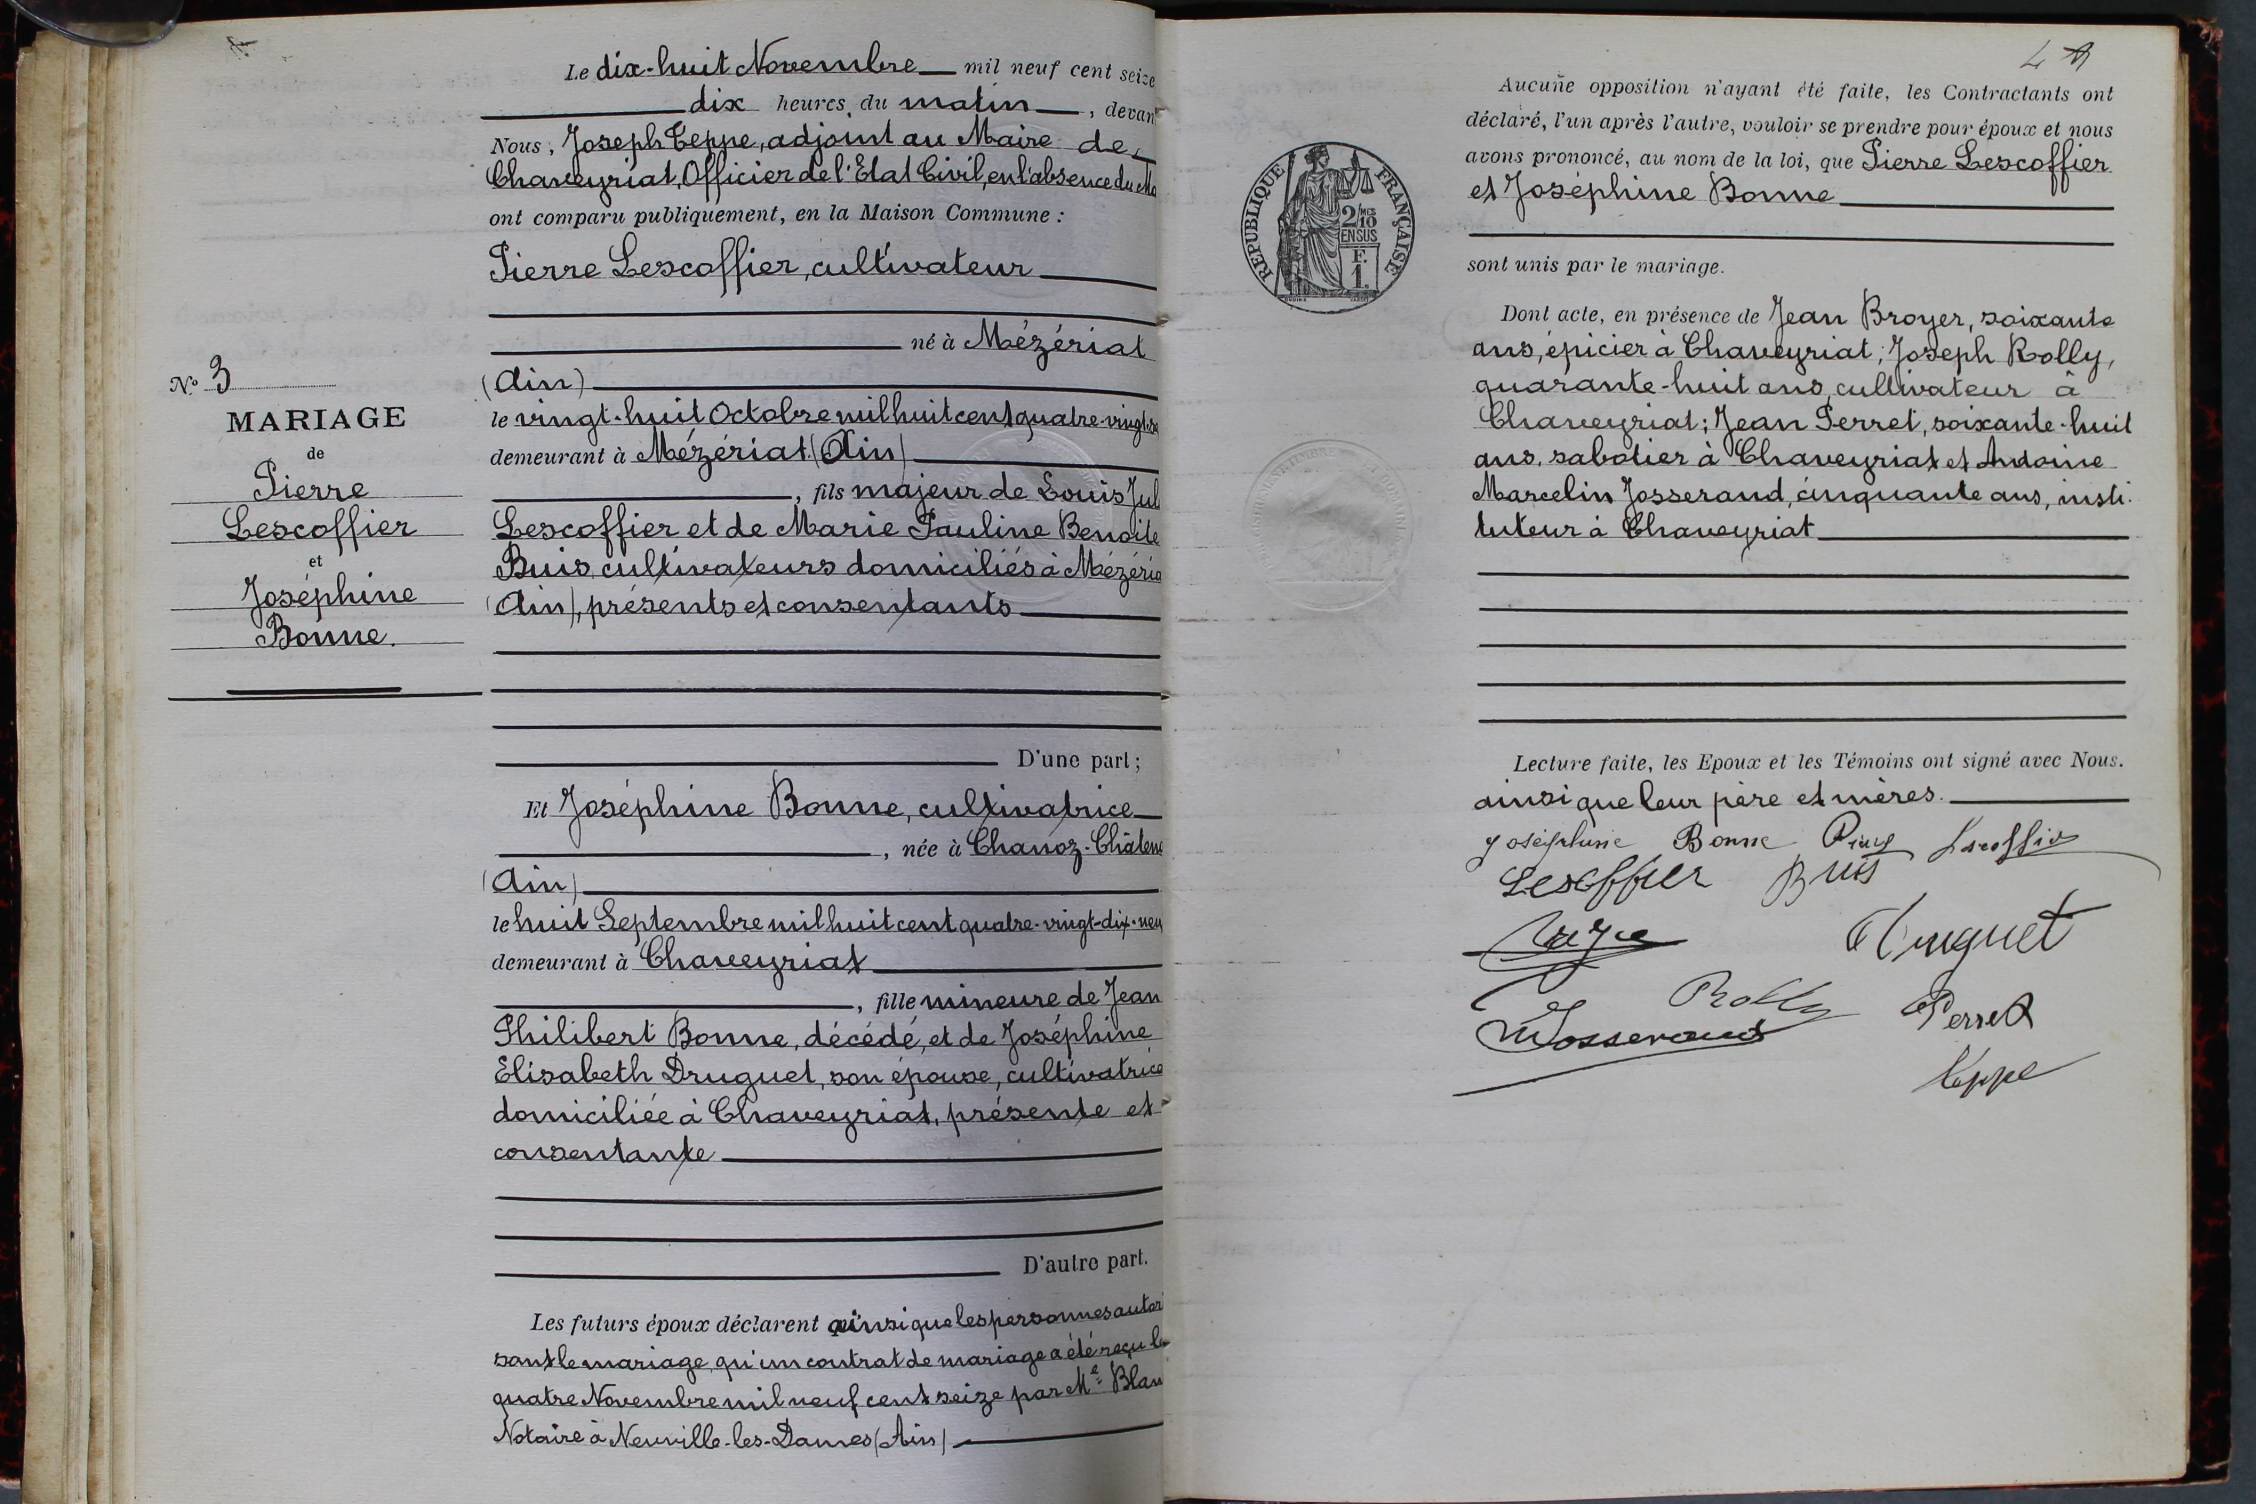 Le dix-huit Novembre mil neuf cent seize
dix heures du matin, devan
Nous, Joseph Teppe, adjoint au Maire de
Chaveyriat, Officier de l'Etat Civil, en l'absence du Ma
ont comparu publiquement, en la Maison Commune :
Pierre Lescoffier, cultivateur
né à Mézériat
(Ain)
le vingt-huit Octobre mil huit cent quatre-vingt-
demeurant à Mézériat (Ain)
, fils majeur de Louis Jul
Lescoffier et de Marie Pauline Benoite
Buis, cultivateurs domiciliés à Mézéria
(Ain), présents et consentants
D'une part ;
Et Joséphine Bonne, cultivatrice
, née à Chanoz-Châten
(Ain)
le huit Septembre mil huit cent quatre-vingt-dix-neu
demeurant à Chaveyriat
, fille mineure de Jean
Philibert Bonne, décédé, et de Joséphine
Elisabeth Druguet, son épouse, cultivatrice
domiciliée à Chaveyriat, présente et
consentante
D'autre part.
Les futurs époux déclarent ainsi que les personnes autori
sant le mariage, qu'un contrat de mariage a été reçu le
quatre Novembre mil neuf cent seize par Me Blan
Notaire à Neuville-les-Dames (Ain)
No 3
MARIAGE
de
Pierre
Lescoffier
et
Joséphine
Bonne.
4
Aucune opposition n'ayant été faite, les Contractants ont
déclaré, l'un après l'autre, vouloir se prendre pour époux et nous
avons prononcé, au nom de la loi, que Pierre Lescoffier
et Joséphine Bonne
sont unis par le mariage.
Dont acte, en présence de Jean Broyer, soixante
ans, épicier à Chaveyriat ; Joseph Rolly,
quarante-huit ans, cultivateur à
Chaveyriat ; Jean Perret, soixante-huit
ans, sabotier à Chaveyriat et Antoine
Marcelin Josserand, cinquante ans, insti-
tuteur à Chaveyriat
Lecture faite, les Epoux et les Témoins ont signé avec Nous.
ainsi que leur père et mères.
Joséphine Bonne Pierre Lescoffier
Lescoffier Buis
Druguet
Rolly Perret
Josserand
Teppe
RÉPUBLIQUE FRANÇAISE
2/10 MES
EN SUS
F.
1.